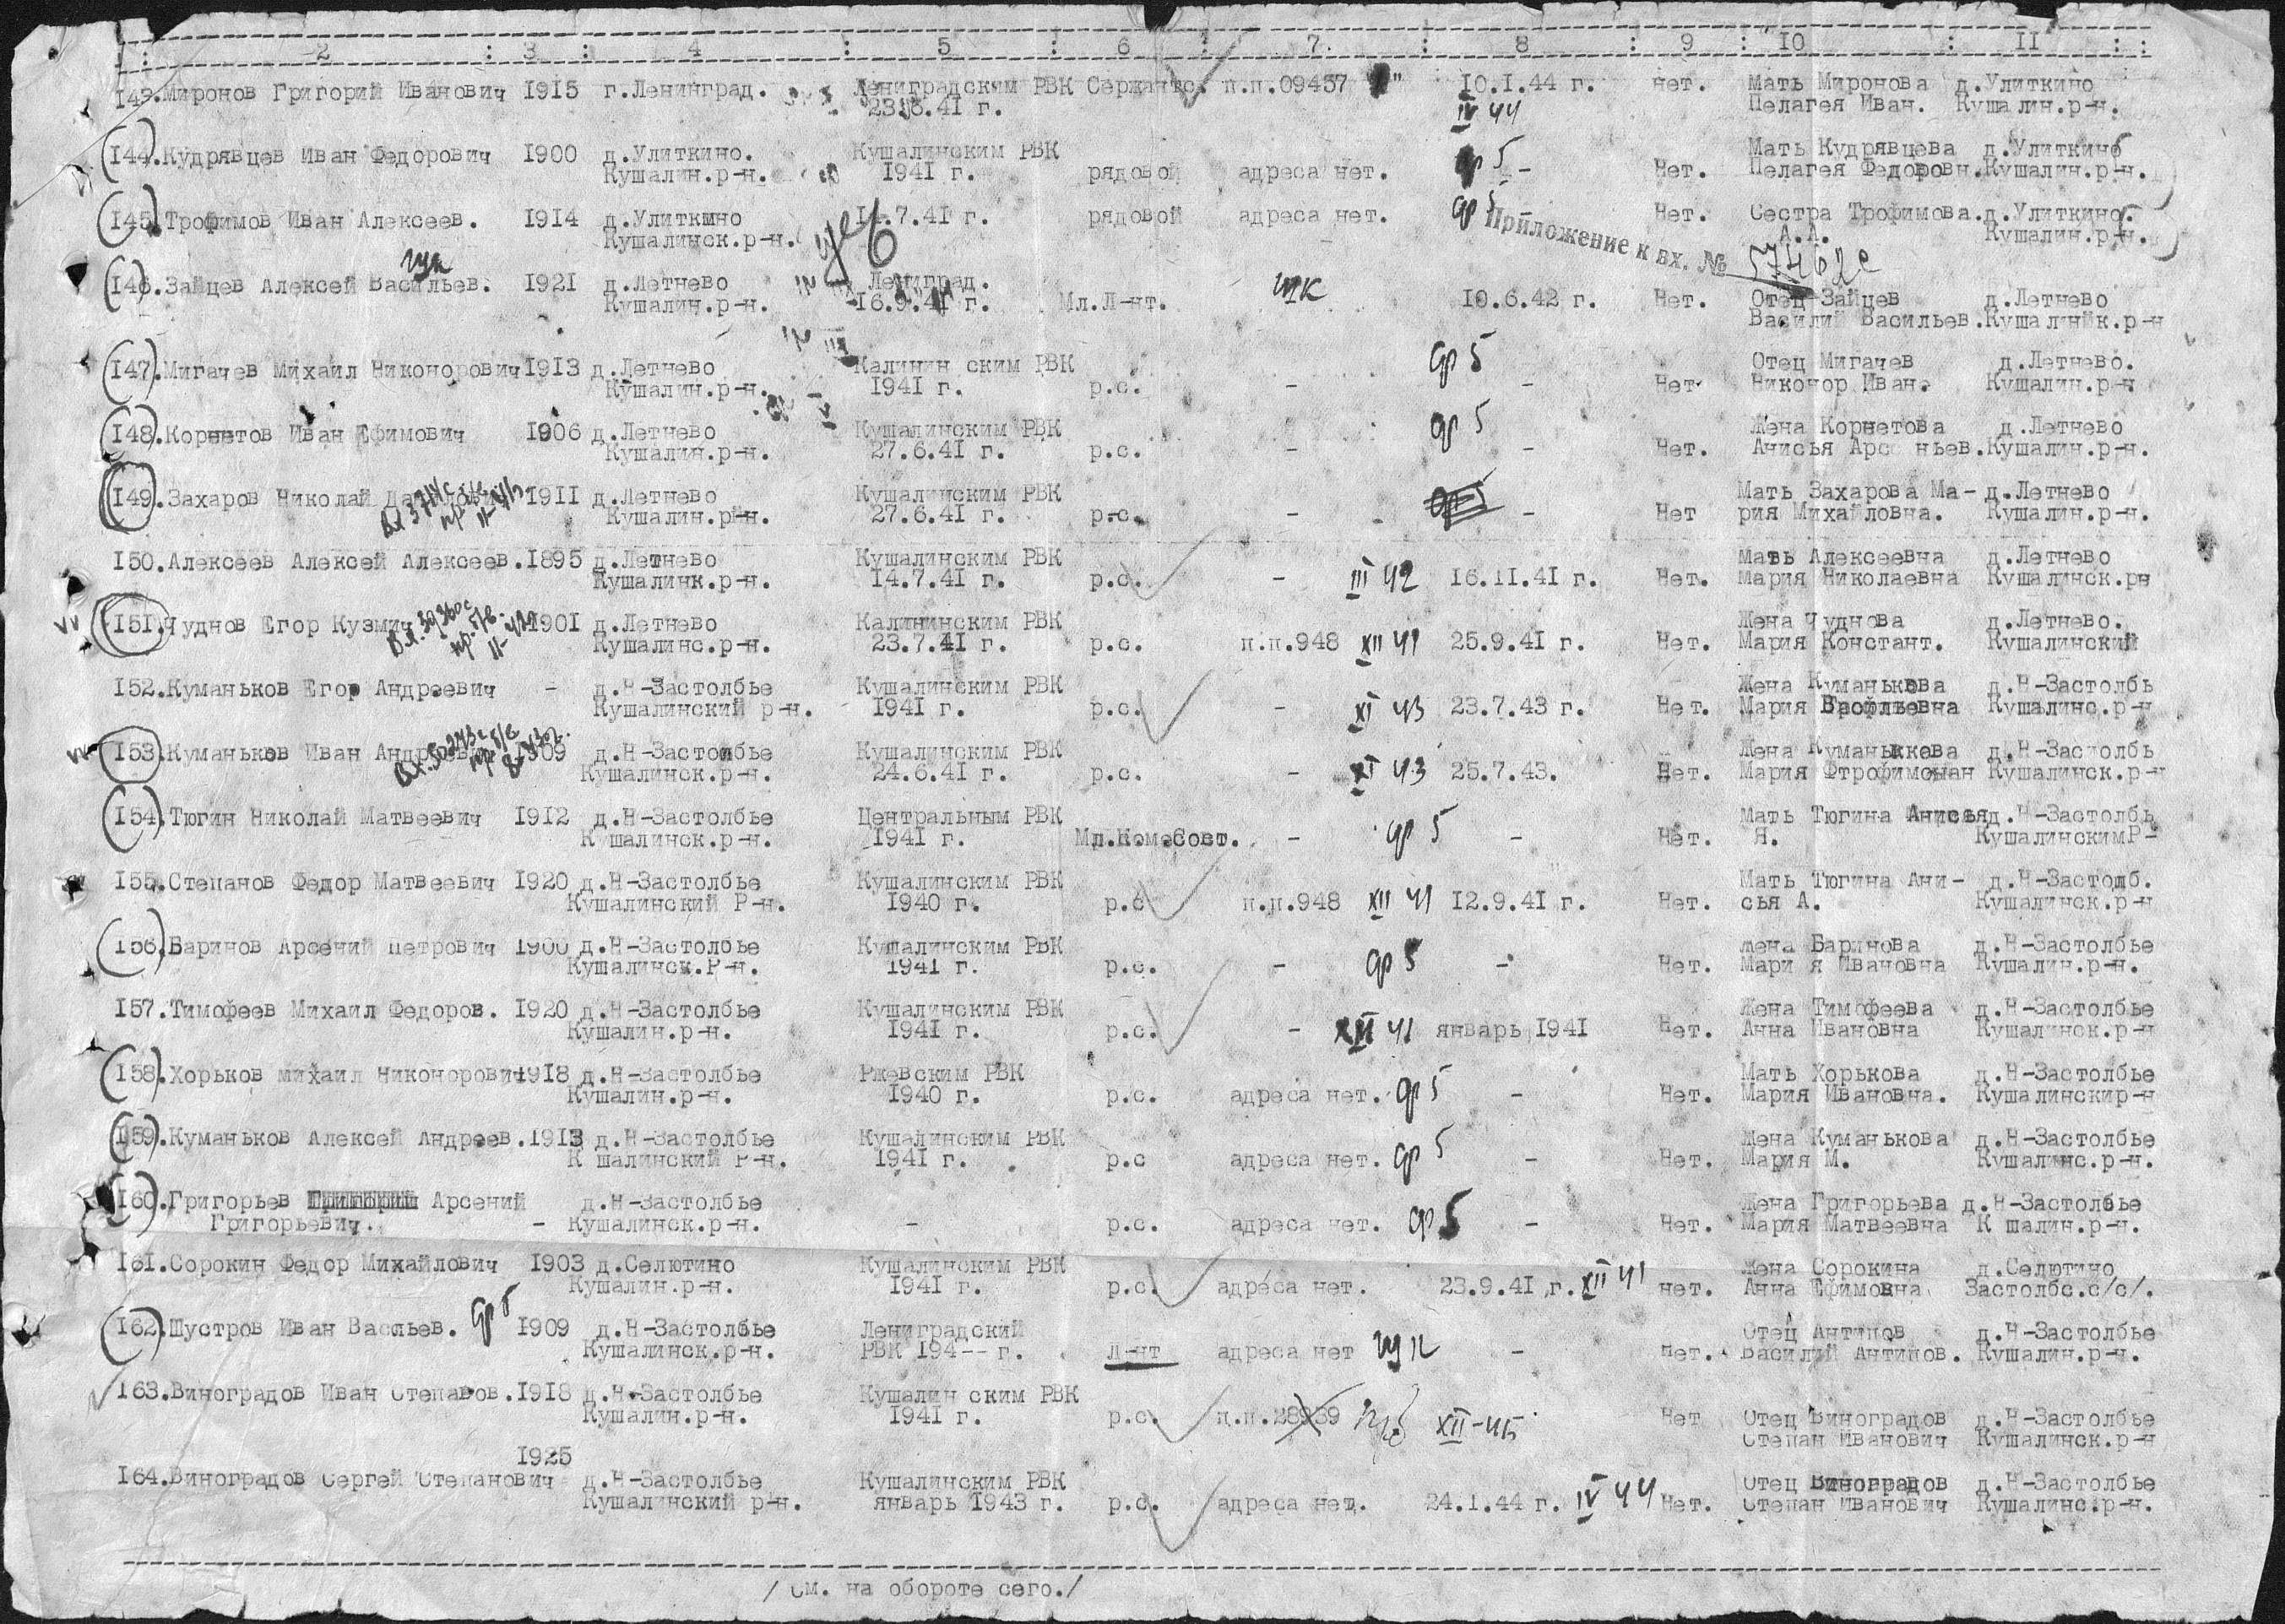 2 : 3 : 4 : 5 : 6 : 7. : 8 : 9 : 10 : 11 : :
143.Миронов Григорий Иванович 1915 г.Ленинград. Лениградским РВК Сержант п.п.09437 10.1.44 г. нет. Мать Миронова д.Улиткино
23.6.41 г. IV 44 Пелагея Иван. Кушалин.р-н.
144.Кудрявцев Иван Федорович 1900 д.Улиткино. Кушалинским РВК Мать Кудрявцева д.Улиткино
Кушалин.р-н. 1941 г. рядовой адреса нет. ф 5 - Нет. Пелагея Федоровн.Кушалин.р-н.
145.Трофимов Иван Алексеев. 1914 д.Улиткино 14.7.41 г. рядовой адреса нет. ф 5 - Нет. Сестра Трофимова.д.Улиткино.
Кушалинск.р-н. А.А. Кушалин.р-н.
Приложение к вх. № 57462с
146.Зайцев Алексей Васильев. 1921 д.Летнево Лениград. Отец Зайцев д.Летнево
Кушалин.р-н. 16.9.41 г. Мл.Л-нт. 10.6.42 г. Нет. Василий Васильев.Кушалинйк.р-н
147.Мигачев Михаил Никонорович 1913 д.Летнево Калинин ским РВК ф 5 Отец Мигачев д.Летнево.
Кушалин.р-н. 1941 г. р.с. - - Нет Никонор Иван. Кушалин.р-н
148.Корнетов Иван Ефимович 1906 д.Летнево Кушалинским РВК ф 5 Жена Корнетова д.Летнево
Кушалин.р-н. 27.6.41 г. р.с. - - Нет. Анисья Арсе ньев.Кушалин.р-н.
149.Захаров Николай 1911 д.Летнево Кушалинским РВК Мать Захарова Ма- д.Летнево
Кушалин.р-н. 27.6.41 г. р.с. - - Нет рия Михайловна. Кушалин.р-н.
150.Алексеев Алексей Алексеев.1895 д.Летнево Кушалинским РВК Мать Алексеевна д.Летнево
Кушалинк.р-н. 14.7.41 г. р.с. - III 42 16.11.41 г. Нет. Мария Николаевна Кушалинск.рн
151.Чуднов Егор Кузмич 1901 д.Летнево Калининским РВК Жена Чуднова д.Летнево.
Кушалинс.р-н. 23.7.41 г. р.с. п.п.948 XII 41 25.9.41 г. Нет. Мария Констант. Кушалинский
152.Куманьков Егор Андреевич - д.Н-Застолбье Кушалинским РВК Жена Куманькова д.Н-Застолбь
Кушалинский р-н. 1941 г. р.с. - XI 43 23.7.43 г. Нет. Мария Кушалинс.р-н
153.Куманьков Иван 1909 д.Н-Застолбье Кушалинским РВК Жена д.Н-Застолбь
Кушалинск.р-н. 24.6.41 г. р.с. - XI 43 25.7.43. Нет. Мария Кушалинск.р-н
154.Тюгин Николай Матвеевич 1912 д.Н-Застолбье Центральным РВК Мать Тюгина Анисья д.Н-Застолбь
К шалинск.р-н. 1941 г. Мл.Ком.Сост. - ф 5 - Нет. Я. КушалинскимР-
155.Степанов Федор Матвеевич 1920 д.Н-Застолбье Кушалинским РВК Мать Тюгина Ани- д.Н-Застолб.
Кушалинский Р-н. 1940 г. р.с п.п.948 XII 41 12.9.41 г. Нет. сья А. Кушалинск.р-н
156.Баринов Арсений Петрович 1900 д.Н-Застолбье Кушалинским РВК Жена Баринова д.Н-Застолбье
Кушалинск.Р-н. 1941 г. р.с. - ф 5 - Нет. Мари я Ивановна Кушалин.р-н.
157.Тимофеев Михаил Федоров. 1920 д.Н-Застолбье Кушалинским РВК Жена Тимофеева д.Н-Застолбье
Кушалин.р-н. 1941 г. р.с. - XII 41 январь 1941 Нет. Анна Ивановна Кушалинск.р-н
158.Хорьков михаил Никонорович1918 д.Н-Застолбье Ржевским РВК Мать Хорькова д.Н-Застолбье
Кушалин.р-н. 1940 г. р.с. адреса нет. ф 5 - Нет. Мария Ивановна. Кушалинскир-н
159.Куманьков Алексей Андреев.1913 д.Н-Застолбье Кушалинским РВК Жена Куманькова д.Н-Застолбье
К шалинский Р-н. 1941 г. р.с адреса нет. ф 5 - Нет. Мария М. Кушалинс.р-н.
160.Григорьев Арсений д.Н-Застолбье Жена Григорьева д.Н-Застолбье
Григорьевич. - Кушалинск.р-н. - р.с. адреса нет. ф 5 - Нет. Мария Матвеевна К шалин.р-н.
161.Сорокин Федор Михайлович 1903 д.Селютино Кушалинским РВК Жена Сорокина д.Селютино
Кушалин.р-н. 1941 г. р.с. адреса нет. 23.9.41 г. XII 41 нет. Анна Ефимовна Застолбс.с/с/.
162.Шустров Иван Васльев. ф 5 1909 д.Н-Застолбье Лениградский Отец Антипов д.Н-Застолбье
Кушалинск.р-н. РВК 194-- г. л-нт адреса нет - Нет. Василий Антипов. Кушалин.р-н.
163.Виноградов Иван Степанов.1918 д.Н-Застолбье Кушалин ским РВК
Кушалин.р-н. 1941 г. р.с. п.п.28939 XII-45 Нет Отец Виноградов д.Н-Застолбье
Степан Иванович Кушалинск.р-н
1925
164.Виноградов Сергей Степанович д.Н-Застолбье Кушалинским РВК Отец Виноградов д.Н-Застолбье
Кушалинский р-н. январь 1943 г. р.с. адреса нет. 24.1.44 г. IV 44 Нет. Степан Иванович Кушалинс.р-н.
/ См. на обороте сего./